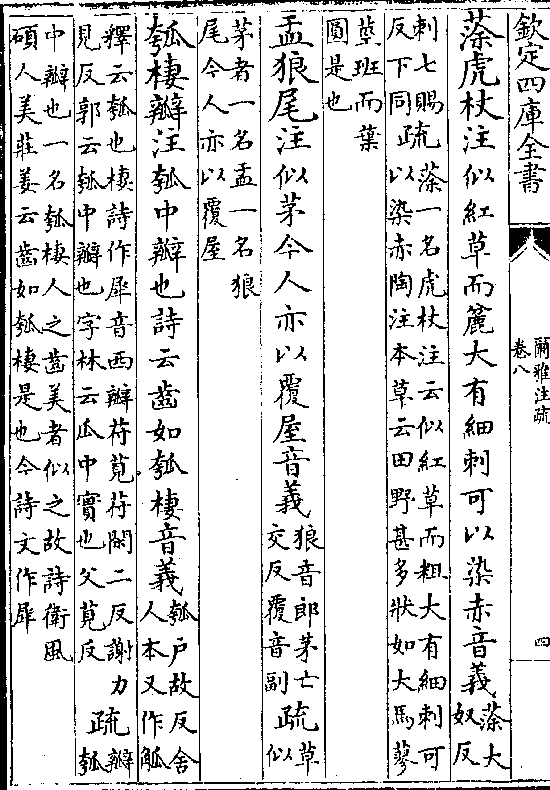 欽定四庫全書
爾雅注疏
卷八
四
蒤虎杖注似紅草而麄大有細刺可以染赤音義蒤大奴反
刺七賜反下同疏蒤一名虎杖注云似紅草而粗大有細刺可以染赤陶注本草云田野甚多狀如大馬蓼
莖班而葉圓是也
盂狼尾注似茅今人亦以覆屋音義狼音郎茅亡交反覆音副疏草似
茅者一名盂一名狼尾今人亦以覆屋
瓠棲瓣注瓠中瓣也詩云齒如瓠棲音義瓠戶故反舍人本又作觚
釋云瓠也棲詩作犀音西瓣苻莧苻閑二反謝力見反郭云瓠中瓣也字林云瓜中實也父莧反疏瓣瓠
中瓣也一名瓠棲人之齒美者似之故詩衛風碩人美莊姜云齒如瓠棲是也今詩文作犀